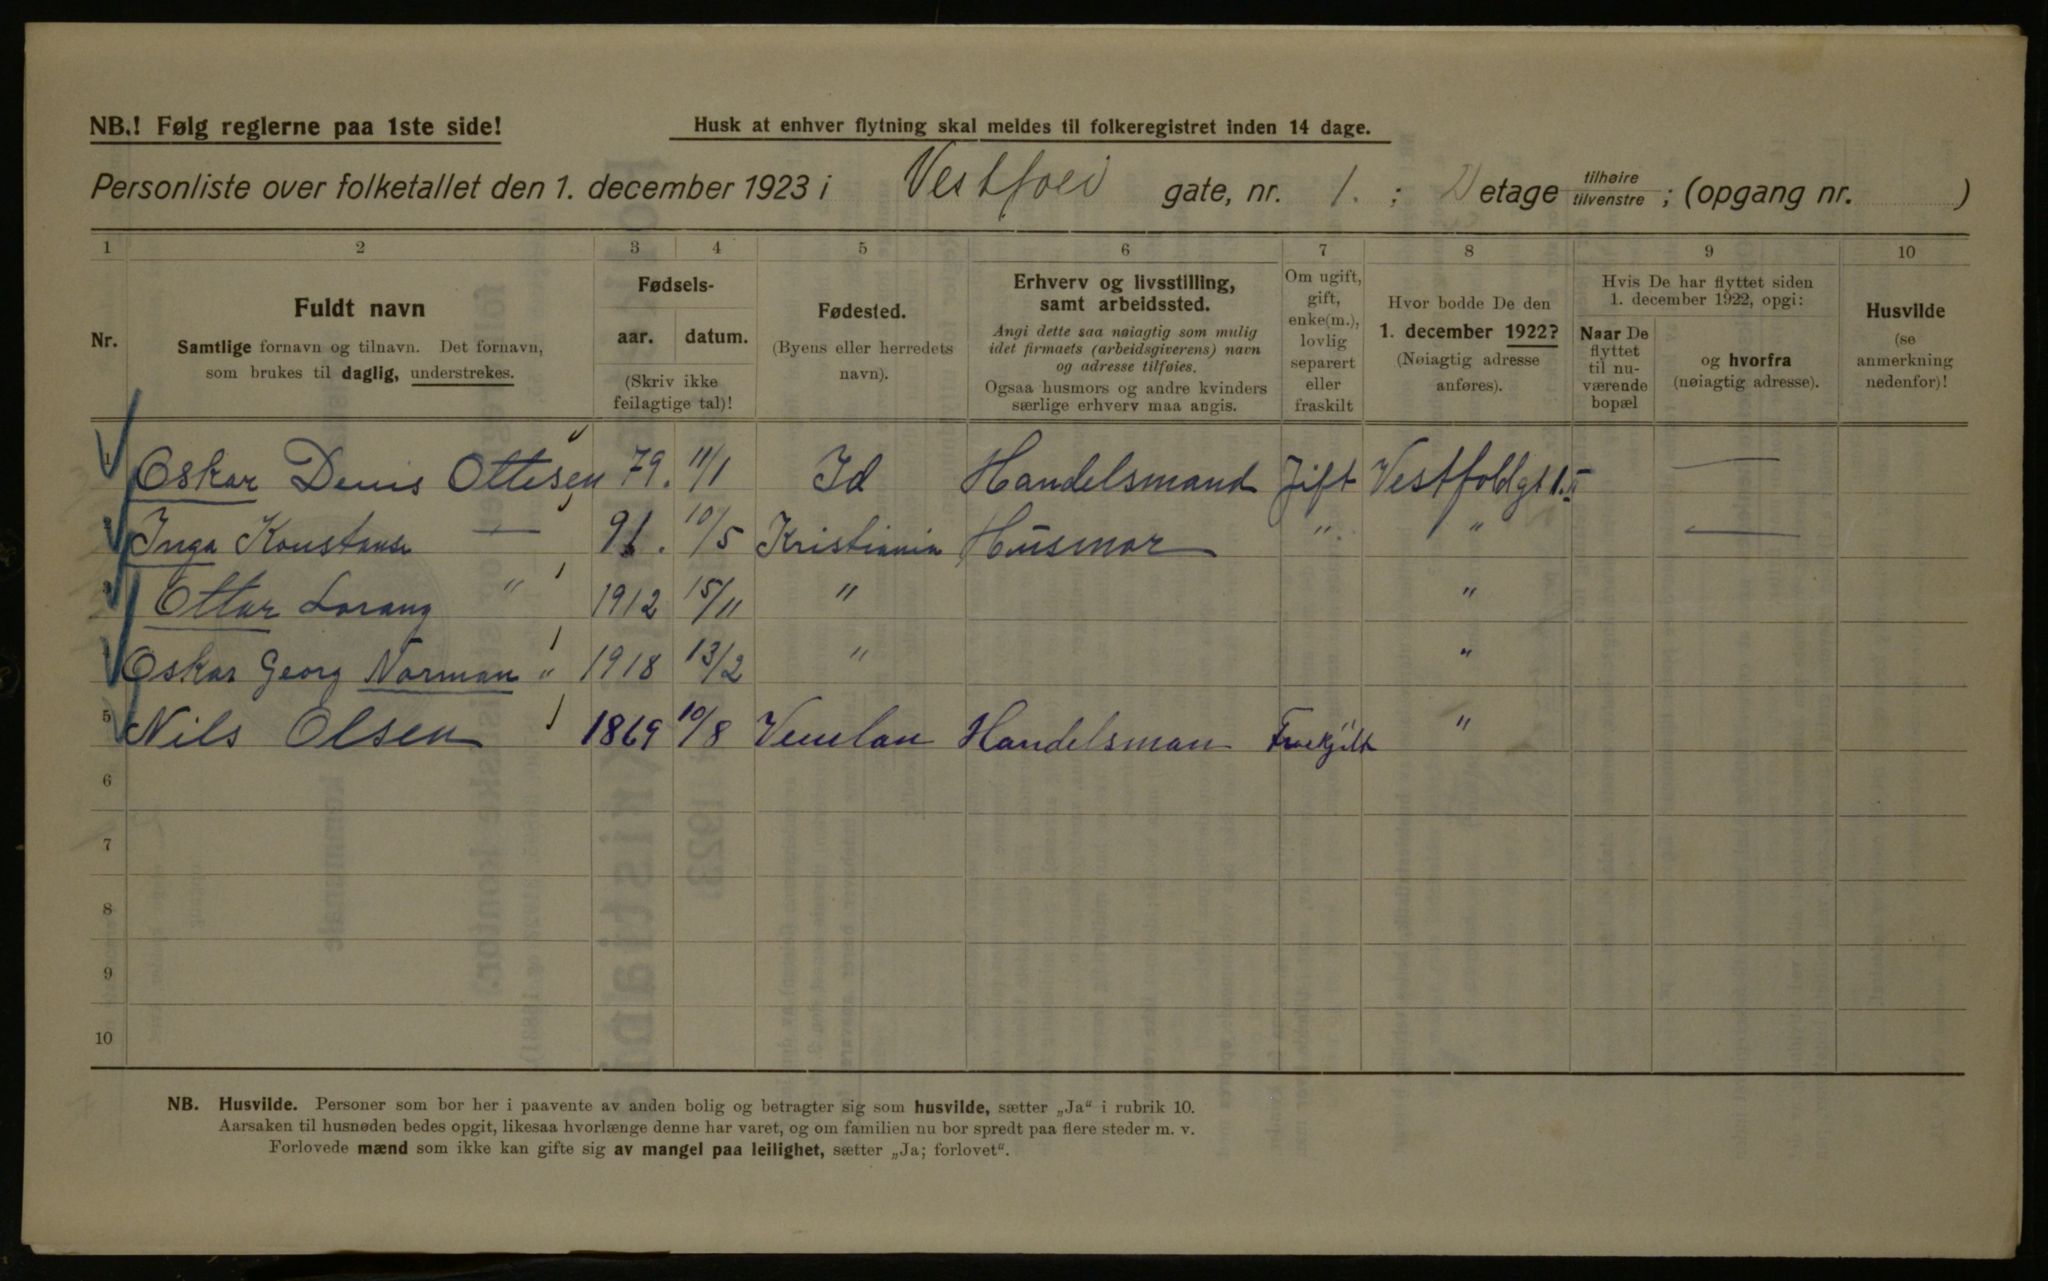 NB.! Følg reglerne paa 1ste side!
Husk at enhver flytning skal meldes til folkeregistret inden 14 dage.
Personliste over folketallet den 1. december 1923 i Vestfold gate, nr. 1. ; etage tilhøire tilvenstre ; (opgang nr. )
1 2 3 4 5 6 7 8 9 10
Nr.
Fuldt navn
Samtlige fornavn og tilnavn. Det fornavn,
som brukes til daglig, understrekes.
Fødsels-
aar. datum.
(Skriv ikke
feilagtige tal)!
Fødested.
(Byens eller herredets
navn).
Erhverv og livsstilling,
samt arbeidssted.
Angi dette saa nøiagtig som mulig
idet firmaets (arbeidsgiverens) navn
og adresse tilføies.
Ogsaa husmors og andre kvinders
særlige erhverv maa angis.
Om ugift,
gift,
enke(m.),
lovlig
separert
eller
fraskilt
Hvor bodde De den
1. december 1922?
(Nøiagtig adresse
anføres).
Hvis De har flyttet siden
1. december 1922, opgi:
Naar De
flyttet
til nu-
værende
bopæl
og hvorfra
(nøiagtig adresse).
Husvilde
(se
anmerkning
nedenfor)!
1 Oskar Denis Ottesen 79. 11/1 Id Handelsmand Gift Vestfoldgt 1. II —
Inga Konstanse — 91. 10/5 Kristiania Husmor " " —
3 Ottar Lorang " 1912 15/11 " "
Oskar Georg Norman " 1918 13/2 " "
5 Nils Olsen 1869 10/8 Handelsman "
6
7
8
9
10
NB. Husvilde. Personer som bor her i paavente av anden bolig og betragter sig som husvilde, sætter „Ja“ i rubrik 10.
Aarsaken til husnøden bedes opgit, likesaa hvorlænge denne har varet, og om familien nu bor spredt paa flere steder m. v.
Forlovede mænd som ikke kan gifte sig av mangel paa leilighet, sætter „Ja; forlovet“.